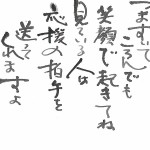 つまずいて
ころんでも
笑顔で起きてね
見ている人は
応援の拍手を
送って
くれますよ